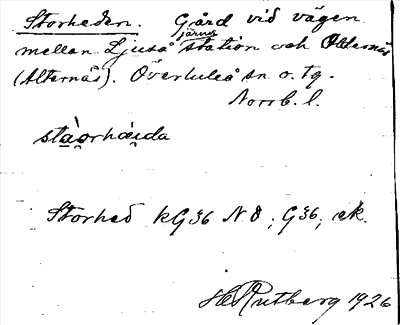 Storheden. Gård vid vägen
mellan Ljuså järnv station och Alternäs
(Alternäs). Överluleå sn o. tg.
Norrb. l.
stàorhàida
Storhed kG36 N8; G36; ek.
H Rutberg 1926